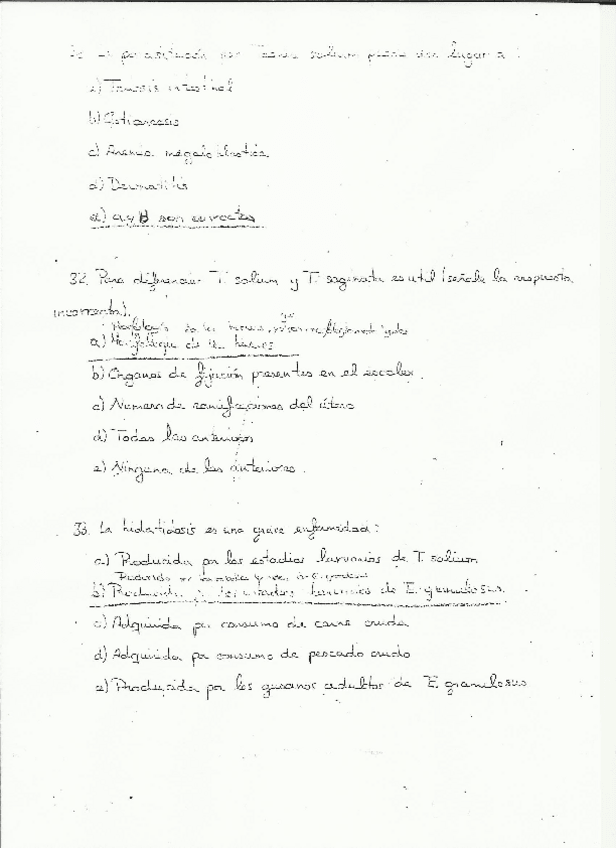 por Taenia solium puede dar lugar a:
a) Teniosis intestinal
b) Cisticercosis
c) Anemia megaloblástica
d) Dermatitis
e) a y b son correctas
32. Para diferenciar T. solium y T. saginata es util (señale la respuesta
incorrecta).
Morfología de los huevos,
a) Morfología de los huevos
b) Órganos de fijación presentes en el escolex.
c) Numero de ramificaciones del útero
d) Todas las anteriores
e) Ninguna de las anteriores.
33. La hidatidosis es una grave enfermedad:
a) Producida por los estadios larvarios de T. solium
b) Producida por los estadios larvarios de E. granulosus.
c) Adquirida por consumo de carne cruda
d) Adquirida por consumo de pescado crudo
e) Producida por los gusanos adultos de E. granulosus